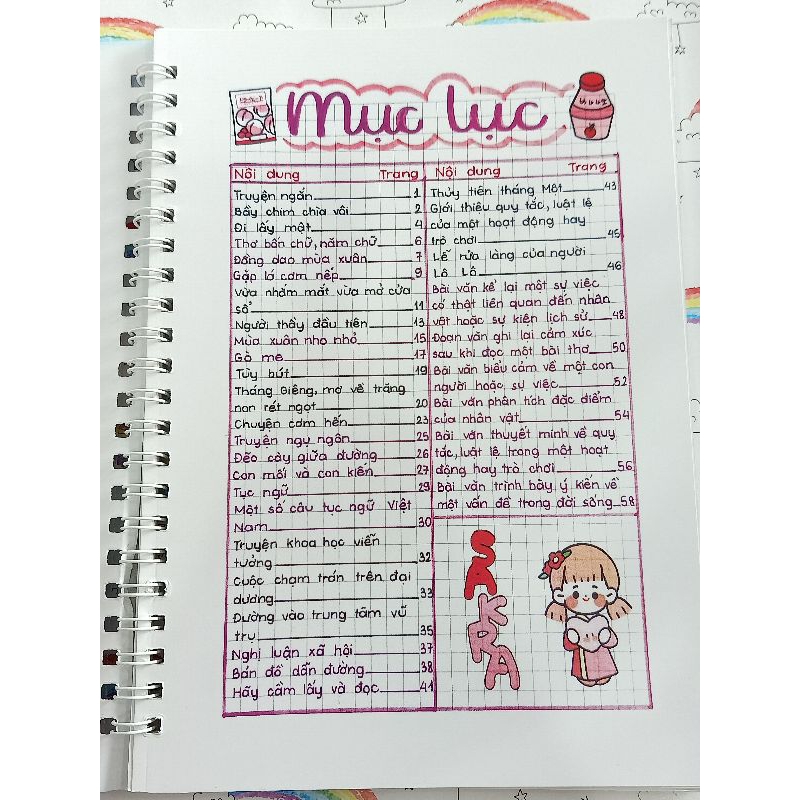 Mục lục
Nội dung Trang
Truyện ngắn 1
Bầy chim chìa vôi 2
Đi lấy mật 4
Thơ bốn chữ, năm chữ 6
Đồng dao mùa xuân 7
Gặp lá cơm nếp 9
Vừa nhắm mắt vừa mở cửa
sổ 11
Người thầy đầu tiên 13
Mùa xuân nho nhỏ 15
Gò me 17
Tùy bút 19
Tháng Giêng, mơ về trăng
non rét ngọt 20
Chuyện cơm hến 23
Truyện ngụ ngôn 25
Đẽo cày giữa đường 26
Con mối và con kiến 27
Tục ngữ 29
Một số câu tục ngữ Việt
Nam 30
Truyện khoa học viễn
tưởng 32
Cuộc chạm trán trên đại
dương 33
Đường vào trung tâm vũ
trụ 35
Nghị luận xã hội 37
Bản đồ dẫn đường 38
Hãy cầm lấy và đọc 41
Nội dung Trang
Thủy tiên tháng Một 43
Giới thiệu quy tắc, luật lệ
của một hoạt động hay
trò chơi 45
Lễ rửa làng của người
Lô Lô 46
Bài văn kể lại một sự việc
có thật liên quan đến nhân
vật hoặc sự kiện lịch sử 48
Đoạn văn ghi lại cảm xúc
sau khi đọc một bài thơ 50
Bài văn biểu cảm về một con
người hoặc sự việc 52
Bài văn phân tích đặc điểm
của nhân vật 54
Bài văn thuyết minh về quy
tắc, luật lệ trong một hoạt
động hay trò chơi 56
Bài văn trình bày ý kiến về
một vấn đề trong đời sống 58
SAKRA